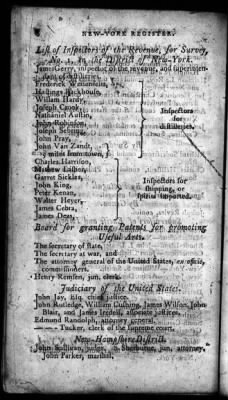 NEW-YORK REGISTER.
List of Inspectors of the Revenue, for Survey,
No. 1. in the District of New-York.
James Gerry, inspector of the revenue, and superinten-
dant of distilleries.
Frederick
Hastings Stackhouse,
William Hardy,
Joseph Crook,
Nathaniel Austin,
John
Joseph Sebring,
John Pray,
John Van Zandt,
miles from town,
Inspectors
for
distilleries.
Charles Harrison,
Mathew
Garret Sickles,
John King,
Peter Kenan,
Walter Heyer,
James Cobra,
James Deas,
Inspectors for
shipping, or
spirits imported.
Board for granting Patents for promoting
Useful Arts.
The secretary of state,
The secretary at war, and
The attorney general of the United States, ex officio,
commissioners.
Henry Remsen, jun. clerk.
Judiciary of the United States.
John Jay, esq. chief justice.
John Rutledge, William Cushing, James Wilson, John
Blair, and James Iredell, associate justices.
Edmund Randolph, attorney general.
Tucker, clerk of the supreme court.
New-Hampshire District.
John Sullivan, judge. Sherburne, jun. attorney.
John Parker, marshal.